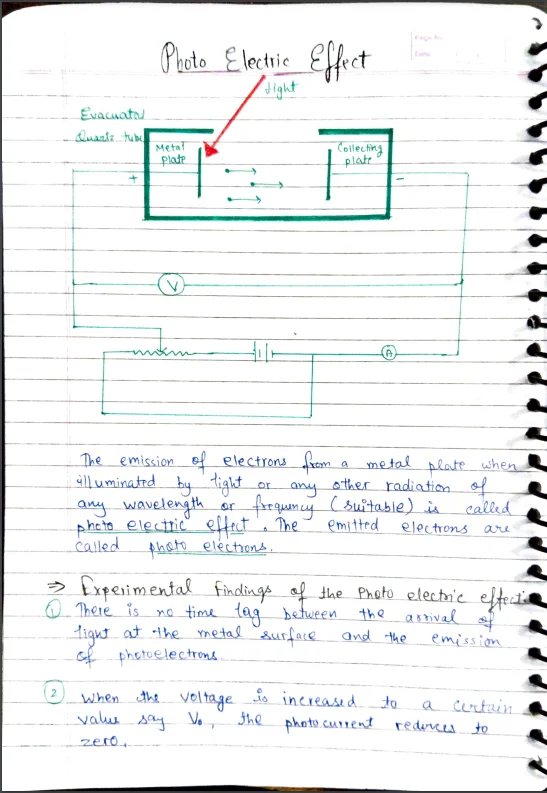 Photo Electric Effect
Page No.
Date
Light
Evacuated
Quartz tube
Metal
plate
Collecting
plate
+
-
V
A
The emission of electrons from a metal plate when
illuminated by light or any other radiation of
any wavelength or frequency (suitable) is called
photo electric effect. The emitted electrons are
called photo electrons.
⇒ Experimental findings of the Photo electric effect:-
① There is no time lag between the arrival of
light at the metal surface and the emission
of photoelectrons.
② When the voltage is increased to a certain
value say V₀, the photocurrent reduces to
zero.